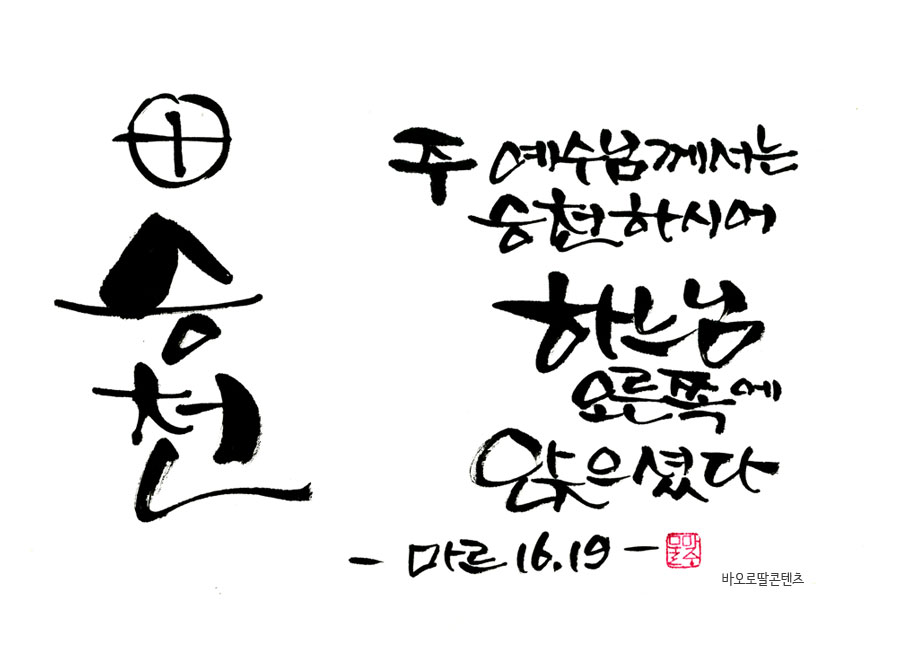 승천
주 예수님께서는
승천하시어
하느님
오른쪽에
앉으셨다
- 마르 16.19 -
바오로딸콘텐츠